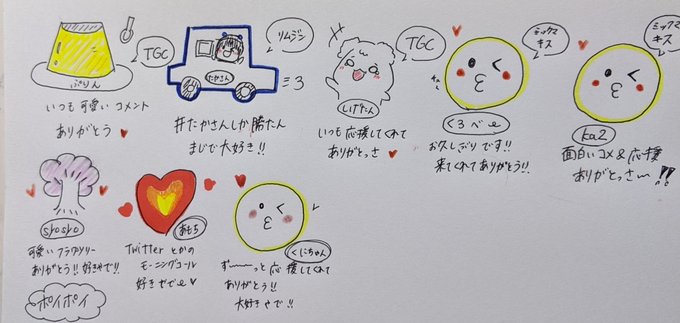 TGC
ぷりん
いつも可愛いコメント
ありがとう
リムジン
たかさん
#たかさんしか勝たん
まじで大好き!!
TGC
しげたん
いつも応援してくれて
ありがとっさ
ミックスマ
キス
くろべe
お久しぶりです!!
来てくれてありがとう!!
ミックスマ
キス
ka2
面白いコメ&応援
ありがとっさ〜!!
syosyo
可愛いフラワツリー
ありがとう!!好きやで!!
ポイポイ
おもち
Twitterとかの
モーニングコール
好きやでe
くにちゃん
ず〜〜っと応援してくれて
ありがとう!!
大好きやで!!